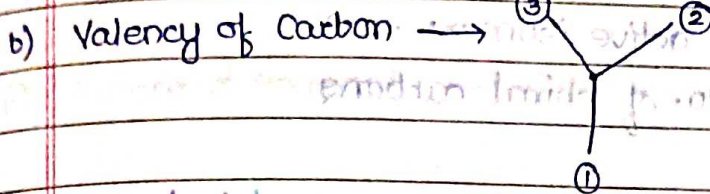 b) Valency of Carbon → ③ ②
①